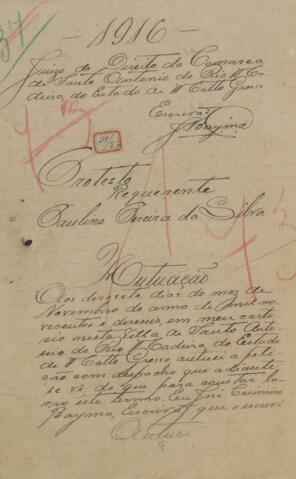 37
1916
Juizo de Direito da Comarca
de Santo Antonio do Rio Ma
deira, do Estado de Matto Grosso
Escrivão
J Bayma
Protesto
Requerente
Paulino Pereira da Silva
Autuação
Aos deseseis dias do mez de
Novembro do anno de mil no
vecentos e deseseis, em meu carto
rio nesta Villa de Santo Anto
nio do Rio Madeira, do Estado
de Matto Grosso autuei a peti
ção com despacho que adiante
se vê do que para constar la
vro este termo. Eu José Casimiro
Bayma, Escrivão, que o escrevi
Autuei